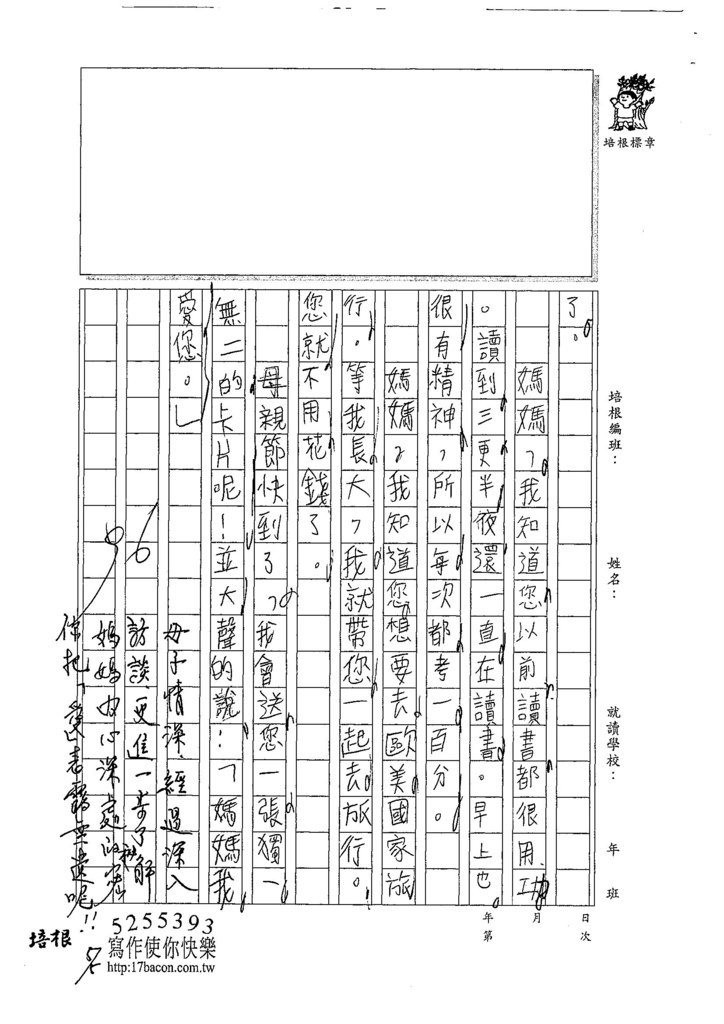 培根標章
培根編班：
姓名：
就讀學校：
年 班
日 月 年
次 第
了。
媽媽，我知道您以前讀書都很用功
。讀到三更半夜還一直在讀書。早上也
很有精神，所以每次都考一百分。
媽媽，我知道您想要去歐美國家旅
行。等我長大，我就帶您一起去旅行。
您就不用花錢了。
母親節快到了，我會送您一張獨一
無二的卡片呢！並大聲的說：「媽媽我
愛您。」
96
母子情深，經過深入
訪談，更進一步了解
媽媽內心深處的
你把愛表露無遺呢!!
5/5
培根
5255393
寫作使你快樂
http:17bacon.com.tw